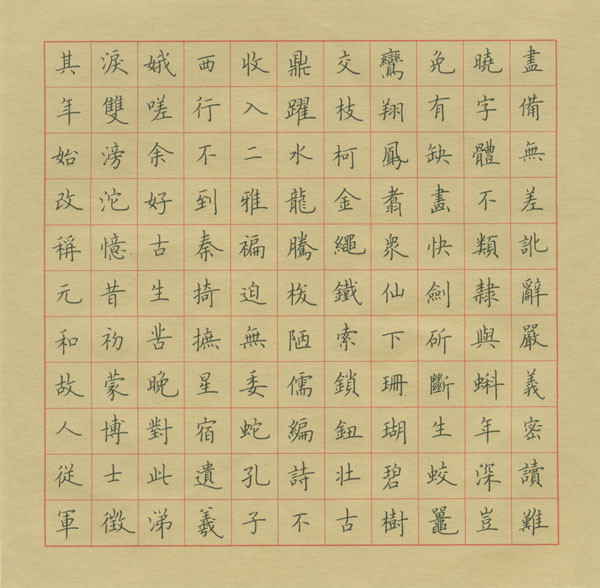 盡備無差訛辭嚴義密讀難
曉字體不類隸與蝌年深豈
免有缺畫快劍斫斷生蛟鼉
鸞翔鳳翥衆仙下珊瑚碧樹
交枝柯金繩鐵索鎖鈕壯古
鼎躍水龍騰梭陋儒編詩不
收入二雅褊迫無委蛇孔子
西行不到秦掎摭星宿遺羲
娥嗟余好古生苦晚對此涕
淚雙滂沱憶昔初蒙博士徵
其年始改稱元和故人從軍